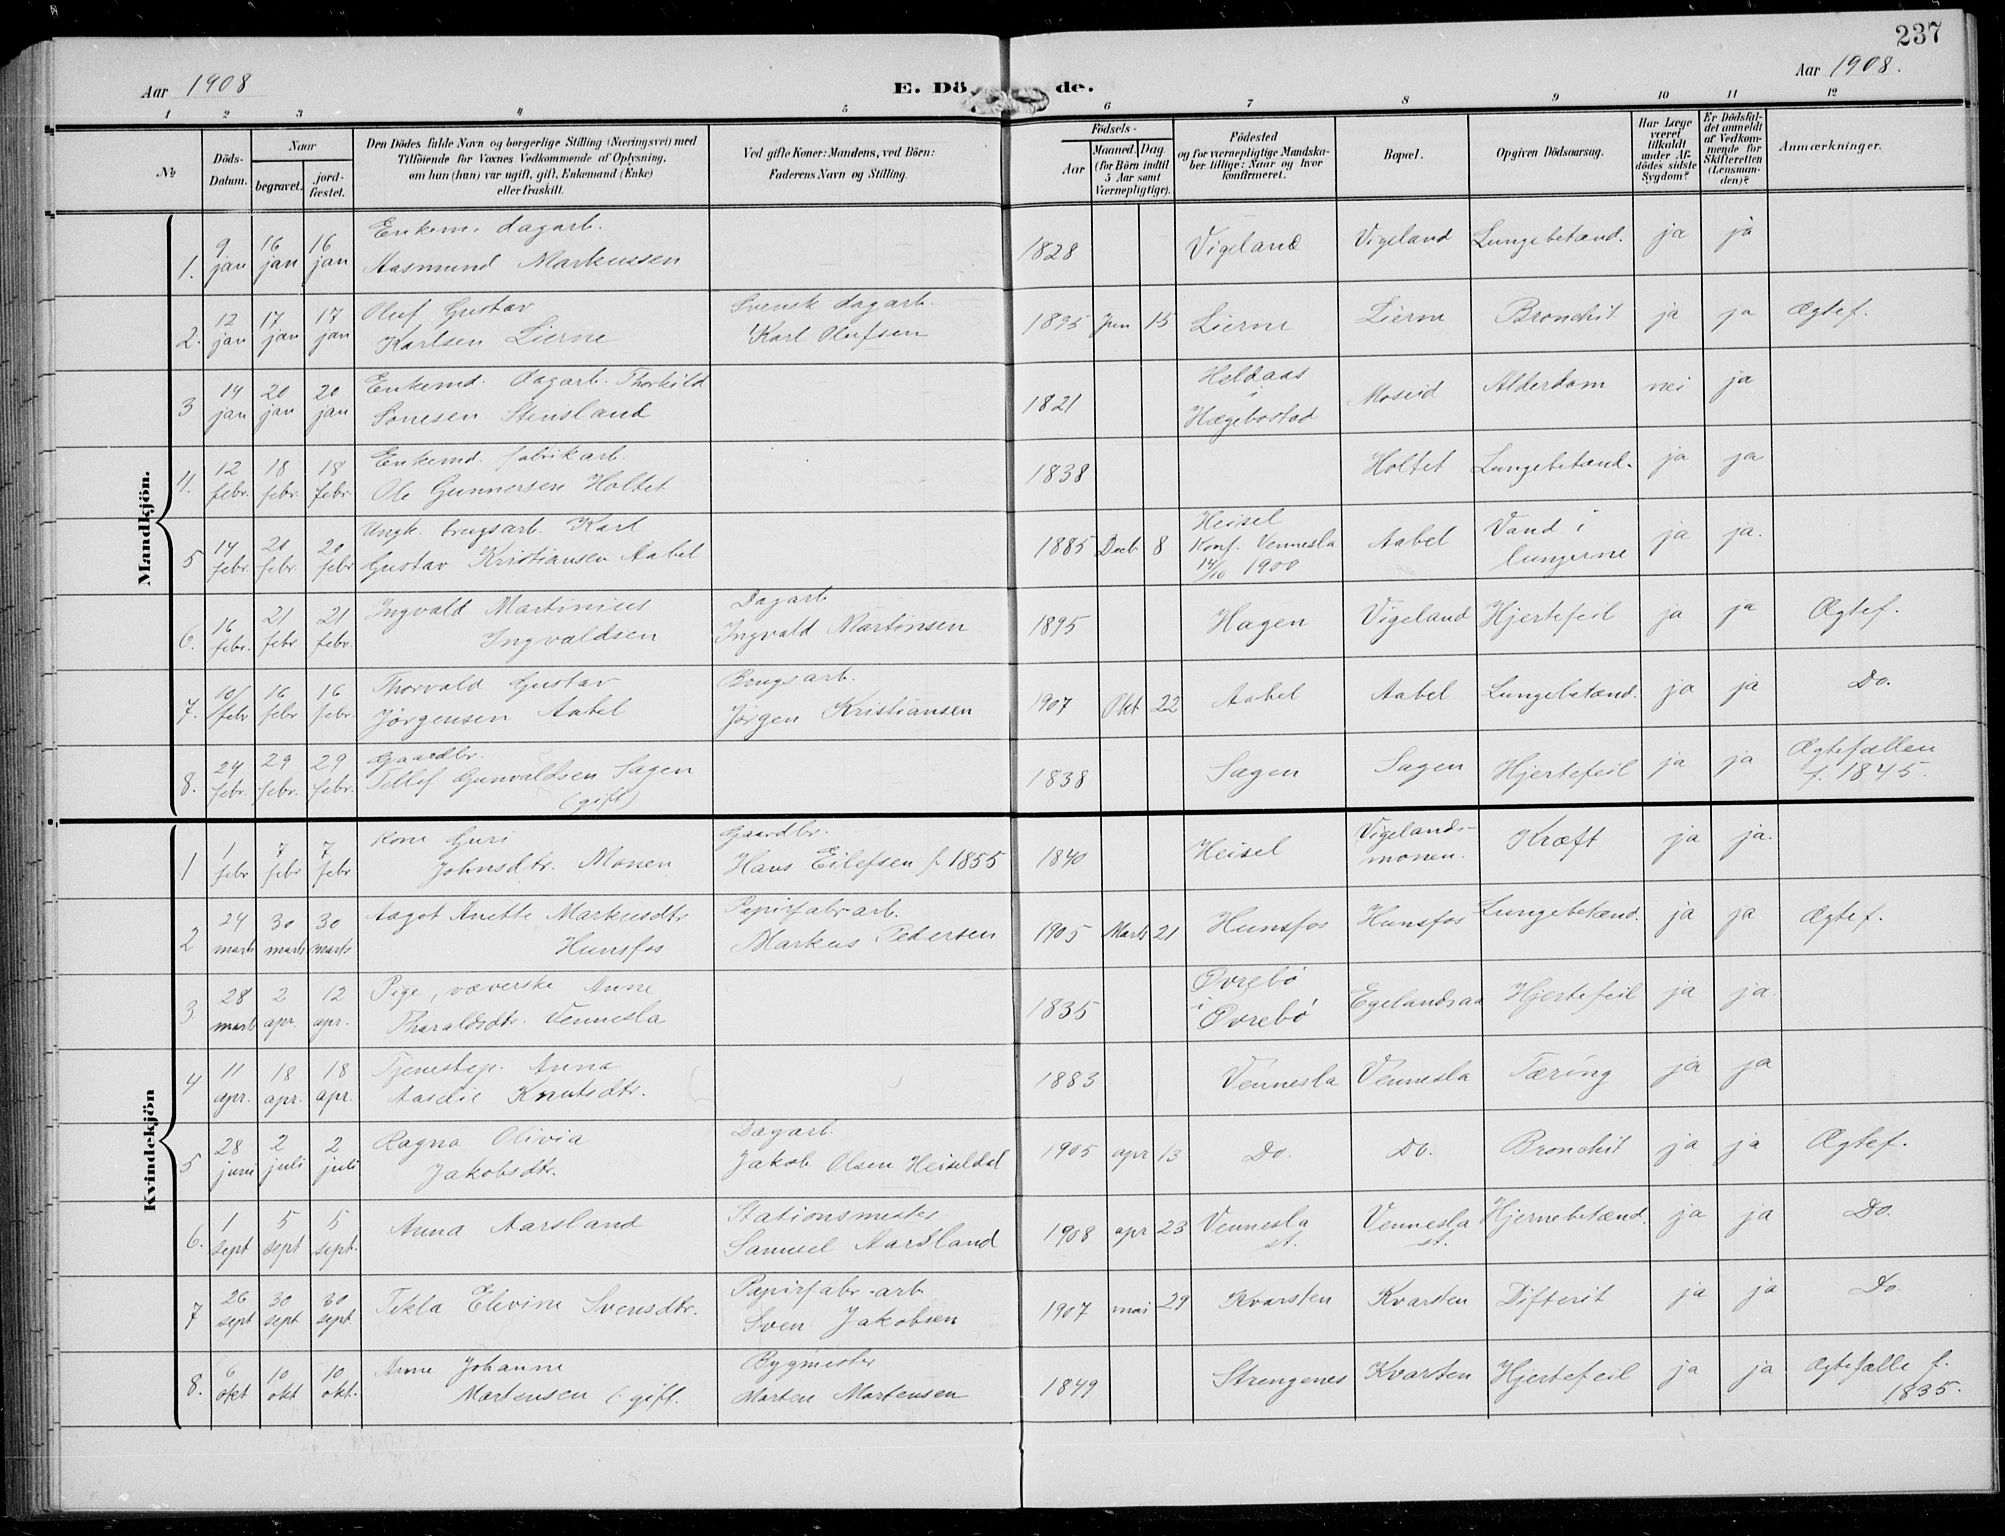 237
Aar 1908
E. Dö de.
Aar 1908.
1 2 3 4 5 6 7 8 9 10 11 12
№
Döds-Datum.
Naar
begravet.
jord-fæstet.
Den Dödes fulde Navn og borgerlige Stilling (Næringsvei) med
Tilföiende for Voxnes Vedkommende af Oplysning,
om han (hun) var ugift, gift, Enkemand (Enke)
eller fraskilt.
Ved gifte Koner: Mandens, ved Börn:
Faderens Navn og Stilling.
Födsels-
Aar
Maaned. Dag
(for Börn indtil
5 Aar samt
Værnepligtige).
Födested
og for værnepligtige Mandska-
ber tillige: Naar og hvor
konfirmeret.
Bopæl.
Opgiven Dödsaarsag.
Har Læge
været
tilkaldt
under Af-
dödes sidste
Sygdom?
Er Dödsfal-
det anmeldt
af Vedkom-
mende for
Skifteretten
(Lensman-
den)?
Anmærkninger.
Mandkjön.
1. 9 jan 16 jan 16 jan Enkem. dagarb.
Aasmund Markussen 1828 Vigeland Vigeland Lungebetænd. ja ja
2. 12 jan 17 jan 17 jan Oluf Gustav
Karlsen Lierne Svensk dagarb.
Karl Olufsen 1895 Jun 15 Lierne Lierne Bronchit ja ja Ægtef.
3 14 jan 20 jan 20 jan Enkemd. dagarb. Thorkild
Sonesen Stensland 1821 Heldaas
i
Hægebostad Moseid Alderdom nei ja
4. 12 febr. 18 febr. 18 febr. Enkemd. fabrikarb.
Ole Gunnersen Holtet 1838 Holtet Lungebetænd. ja ja
5 14 febr. 20 febr. 20 febr Ungk. brugsarb. Karl
Gustav Kristiansen Aabel 1885 Decb 8 Heisel
Konf. Vennesla
14/10 1900 Aabel Vand i
lungerne ja ja.
6. 16 febr. 21 febr 21 febr. Ingvald Martinius
Ingvaldsen Dagarb
Ingvald Martinsen 1895 Hagen Vigeland Hjertefeil ja ja Ægtef.
7. 10/febr 16 febr 16 febr. Thorvald Gustav
Jørgensen Aabel Brugsarb.
Jørgen Kristiansen 1907 Okt 22 Aabel Aabel Lungebetænd. ja ja Do.
8. 24 febr. 29 febr. 29 febr. Gaardbr.
Tellef Gunvaldsen Sagen
(gift) 1838 Sagen Sagen Hjertefeil ja ja Ægtefællen
f. 1845.
Kvindekjön
1 1 febr 7 febr 7 febr Kone Guri
Johnsdtr. Monen Gaardbr.
Hans Eilefsen f. 1855 1840 Heisel Vigelands-
monen. Kræft ja ja.
2 24 marts 30 marts 30 marts Aagot Anette Markusdtr
Hunsfos Papirfabr-arb.
Markus Pedersen 1905 Marts 21 Hunsfos Hunsfos Lungebetænd. ja ja Ægtef.
3. 28 marts 2 apr. 12 apr. Pige, væverske Anne
Tharaldsdtr. Vennesla 1835 Øvrebø
i
Øvrebø Egelandsaa Hjertefeil ja ja.
4 11 apr. 18 apr. 18 apr. Tjenestep. Anna
Aasdie Knutsdtr. 1883 Vennesla Vennesla Tæring ja ja
5 28 juni 2 juli 2 juli Ragna Olivia
Jakobsdtr. Dagarb
Jakob Olsen Heiseldal 1905 apr 13 Do. Do. Bronchit ja ja Ægtef.
6. 1 sept 5 sept 5 sept. Anna Aarsland Stationsmester
Samuel Aarsland 1908 apr 23 Vennesla
st. Vennesla
st. Hjernebetænd. ja ja Do.
7 26 sept 30 sept 30 sept. Tekla Elevine Svensdtr. Papirfabr-arb.
Sven Jakobsen 1907 mai 29 Kvarsten Kvarsten Difterit ja ja Do.
8. 6 okt 10 okt 10 okt. Anne Johanne
Martensen (gift. Bygmester
Morten Mortensen 1849 Strengenes Kvarsten Hjertefeil ja ja Ægtefælle f.
1835.